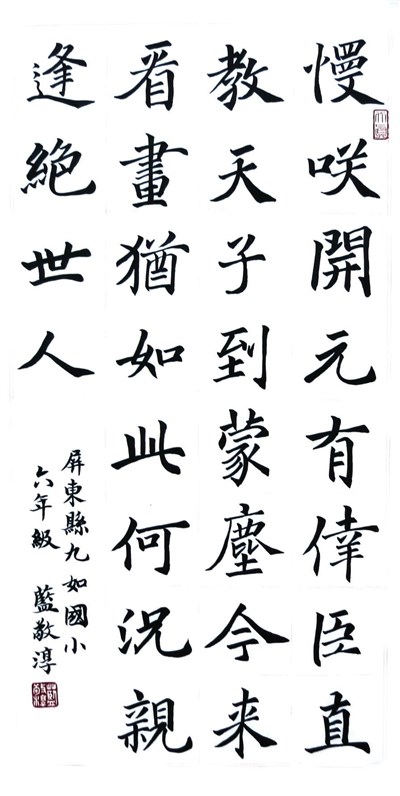 慢咲開元有倖臣直
教天子到蒙塵今来
看畫猶如此何況親
逢絕世人
屏東縣九如國小
六年級 藍敬淳